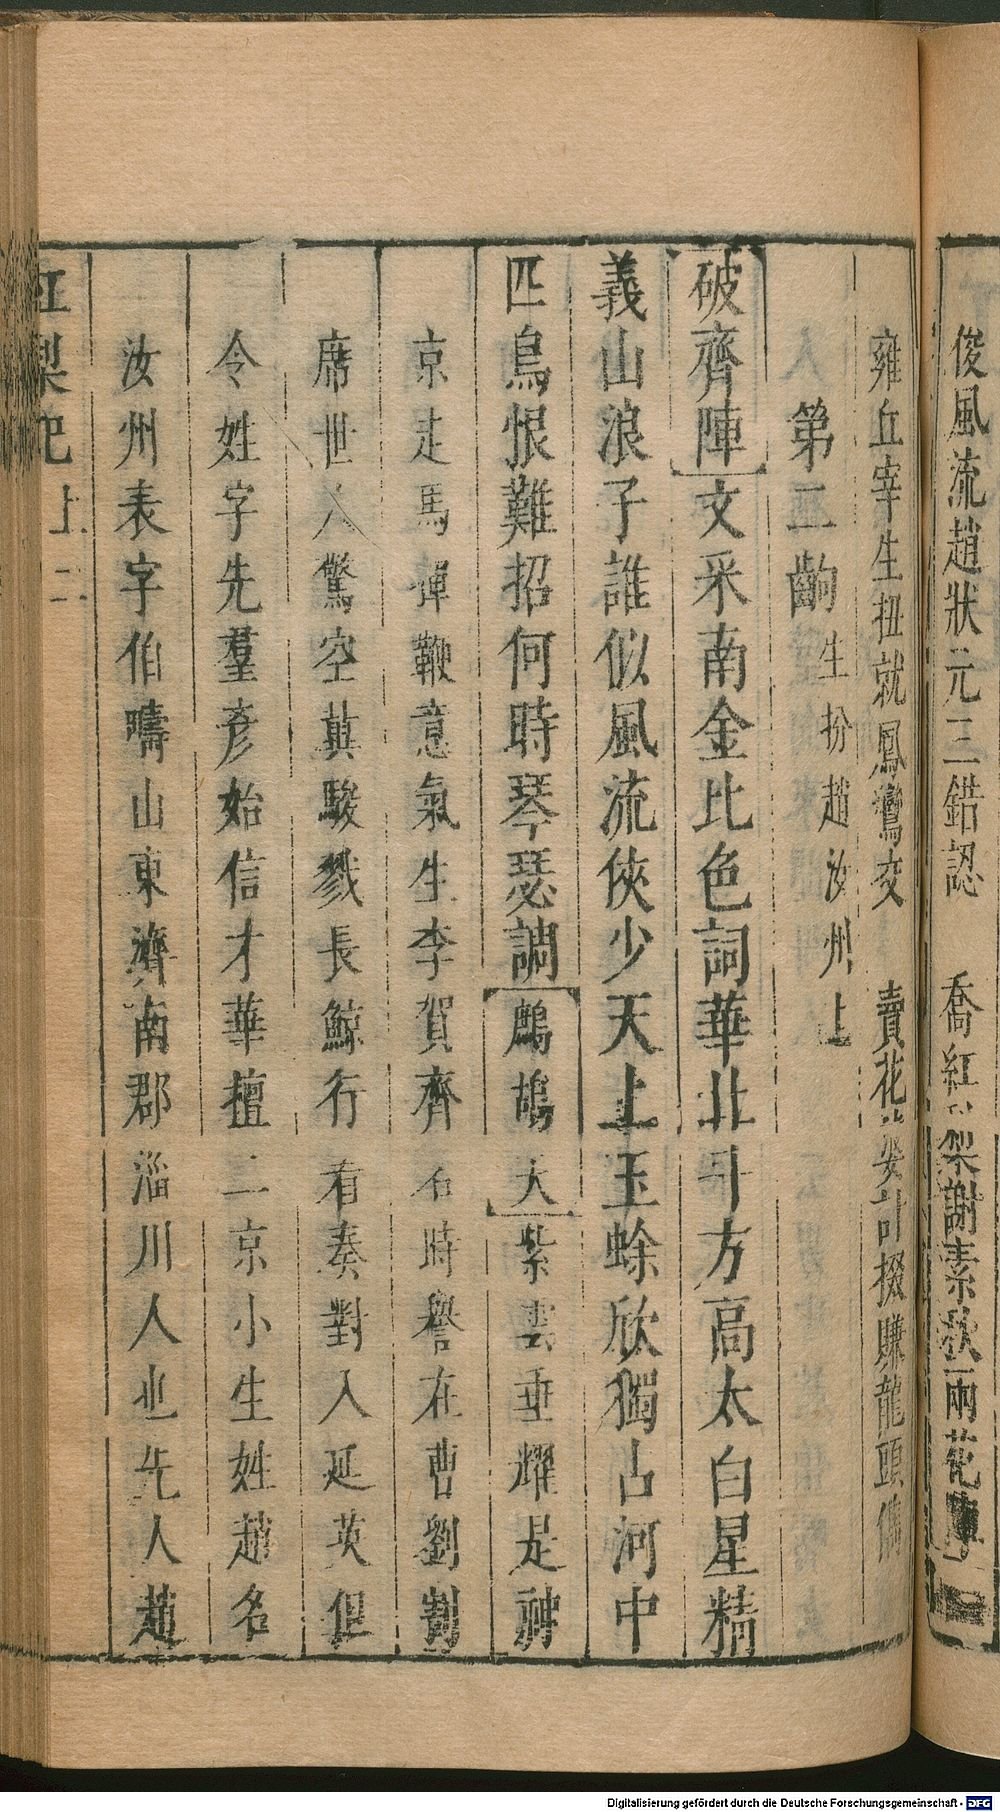 俊風流趙狀元三錯認　喬紅梨謝素秋兩花
雍丘宰生扭就鳳鸞交　賣花婆計掇賺龍頭儁
第二齣 生扮趙汝州上
破齊陣 文采南金比色詞華北斗方高太白星精
義山浪子誰似風流俠少天上玉蜍欣獨占河中
匹鳥恨難招何時琴瑟調 鷓鴣天 紫雲垂耀是神
京走馬彈鞭意氣生李賀齊名時譽在曹劉割
席世人驚空冀駿戮長鯨行看奏對入延英但
令姓字先羣彥始信才華擅二京小生姓趙名
汝州表字伯疇山東濟南郡淄川人也先人趙
紅梨記 上 二
Digitalisierung gefördert durch die Deutsche Forschungsgemeinschaft - DFG